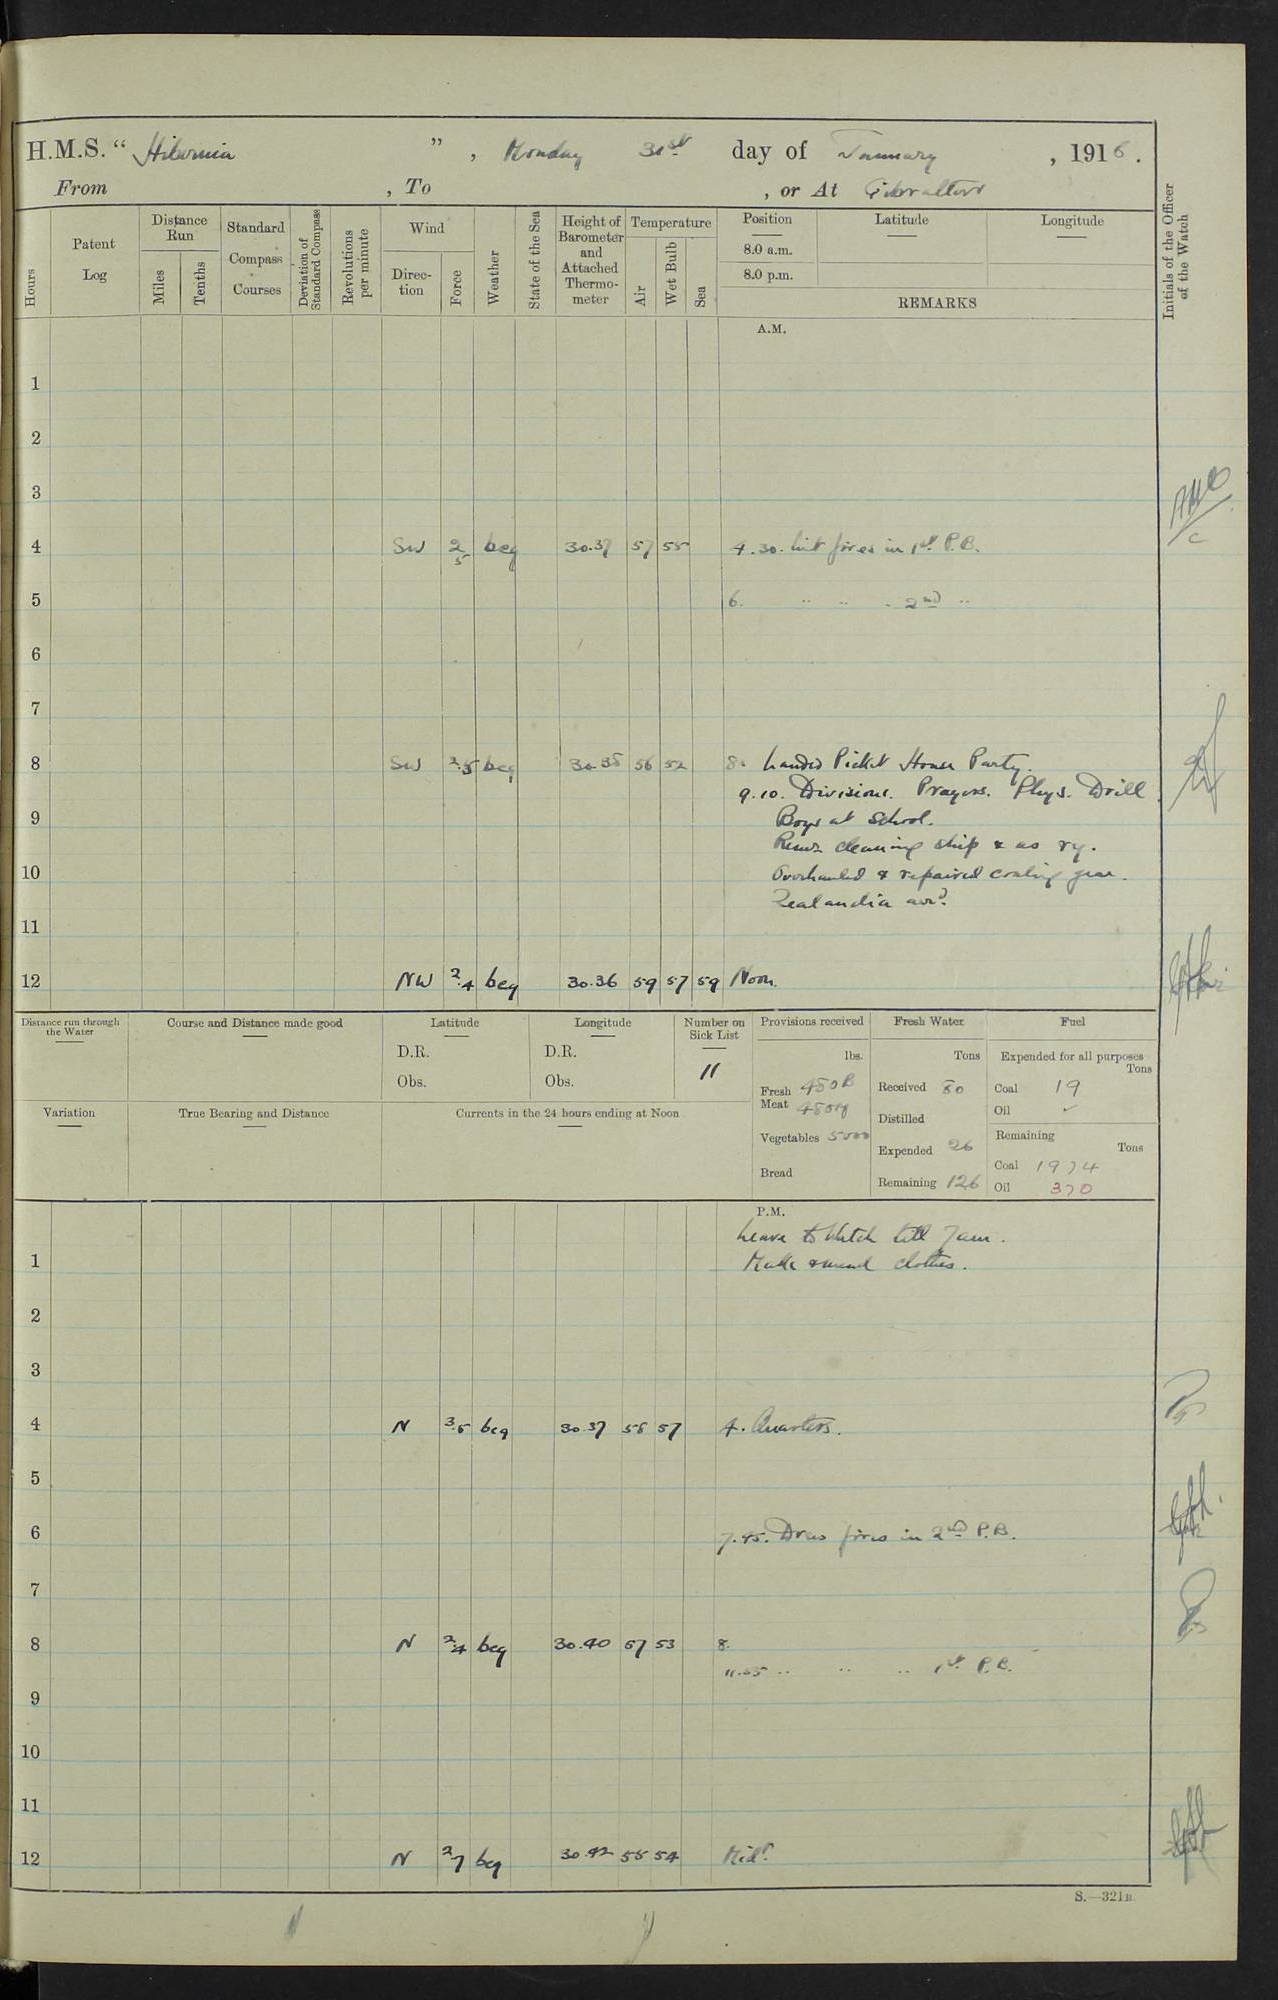 H.M.S. “ Hibernia ” , Monday 31st day of January , 1916 .
From , To , or At Gibraltar
Hours
Patent Log
Distance Run
Miles
Tenths
Standard Compass Courses
Deviation of Standard Compass
Revolutions per minute
Wind
Direc-tion
Force
Weather
State of the Sea
Height of Barometer and Attached Thermo-meter
Temperature
Air
Wet Bulb
Sea
Position
8.0 a.m.
8.0 p.m.
Latitude
Longitude
REMARKS
Initials of the Officer of the Watch
A.M.
1
2
3
4 SW 2.5 bcg 30.37 57 55 4.30. Lit fires in 1st P.B.
5 6. " " " 2nd "
6
7
8 SW 2.5 bcg 30.35 56 52 8. Landed Picket House Party.
9.10. Divisions. Prayers. Phys. Drill
9 Boys at School.
cleaning ship & as ry.
10 Overhauled & repaired coaling gear.
Zealandia arrd.
11
12 NW 2.4 bcg 30.36 59 57 59 Noon.
Distance run through the Water
Course and Distance made good
Latitude
D.R.
Obs.
Longitude
D.R.
Obs.
Number on Sick List
11
Variation
True Bearing and Distance
Currents in the 24 hours ending at Noon
Provisions received
lbs.
Fresh Meat 450 B
Vegetables 5000
Bread
Fresh Water
Tons
Received 50
Distilled
Expended 26
Remaining 126
Fuel
Expended for all purposes
Tons
Coal 19
Oil ✓
Remaining
Tons
Coal 1974
Oil 370
P.M.
Leave to Watch till 7am.
1 Make & mend clothes.
2
3
4 N 3.5 bcg 30.37 58 57 4. Quarters.
5
6 7.45. Drew fires in 2nd P.B.
7
8 N 2.4 bcg 30.40 57 53 8.
11.55 " " " 1st P.B.
9
10
11
12 N 2.7 bcg 30.42 55 54 Midt.
S.—321B.